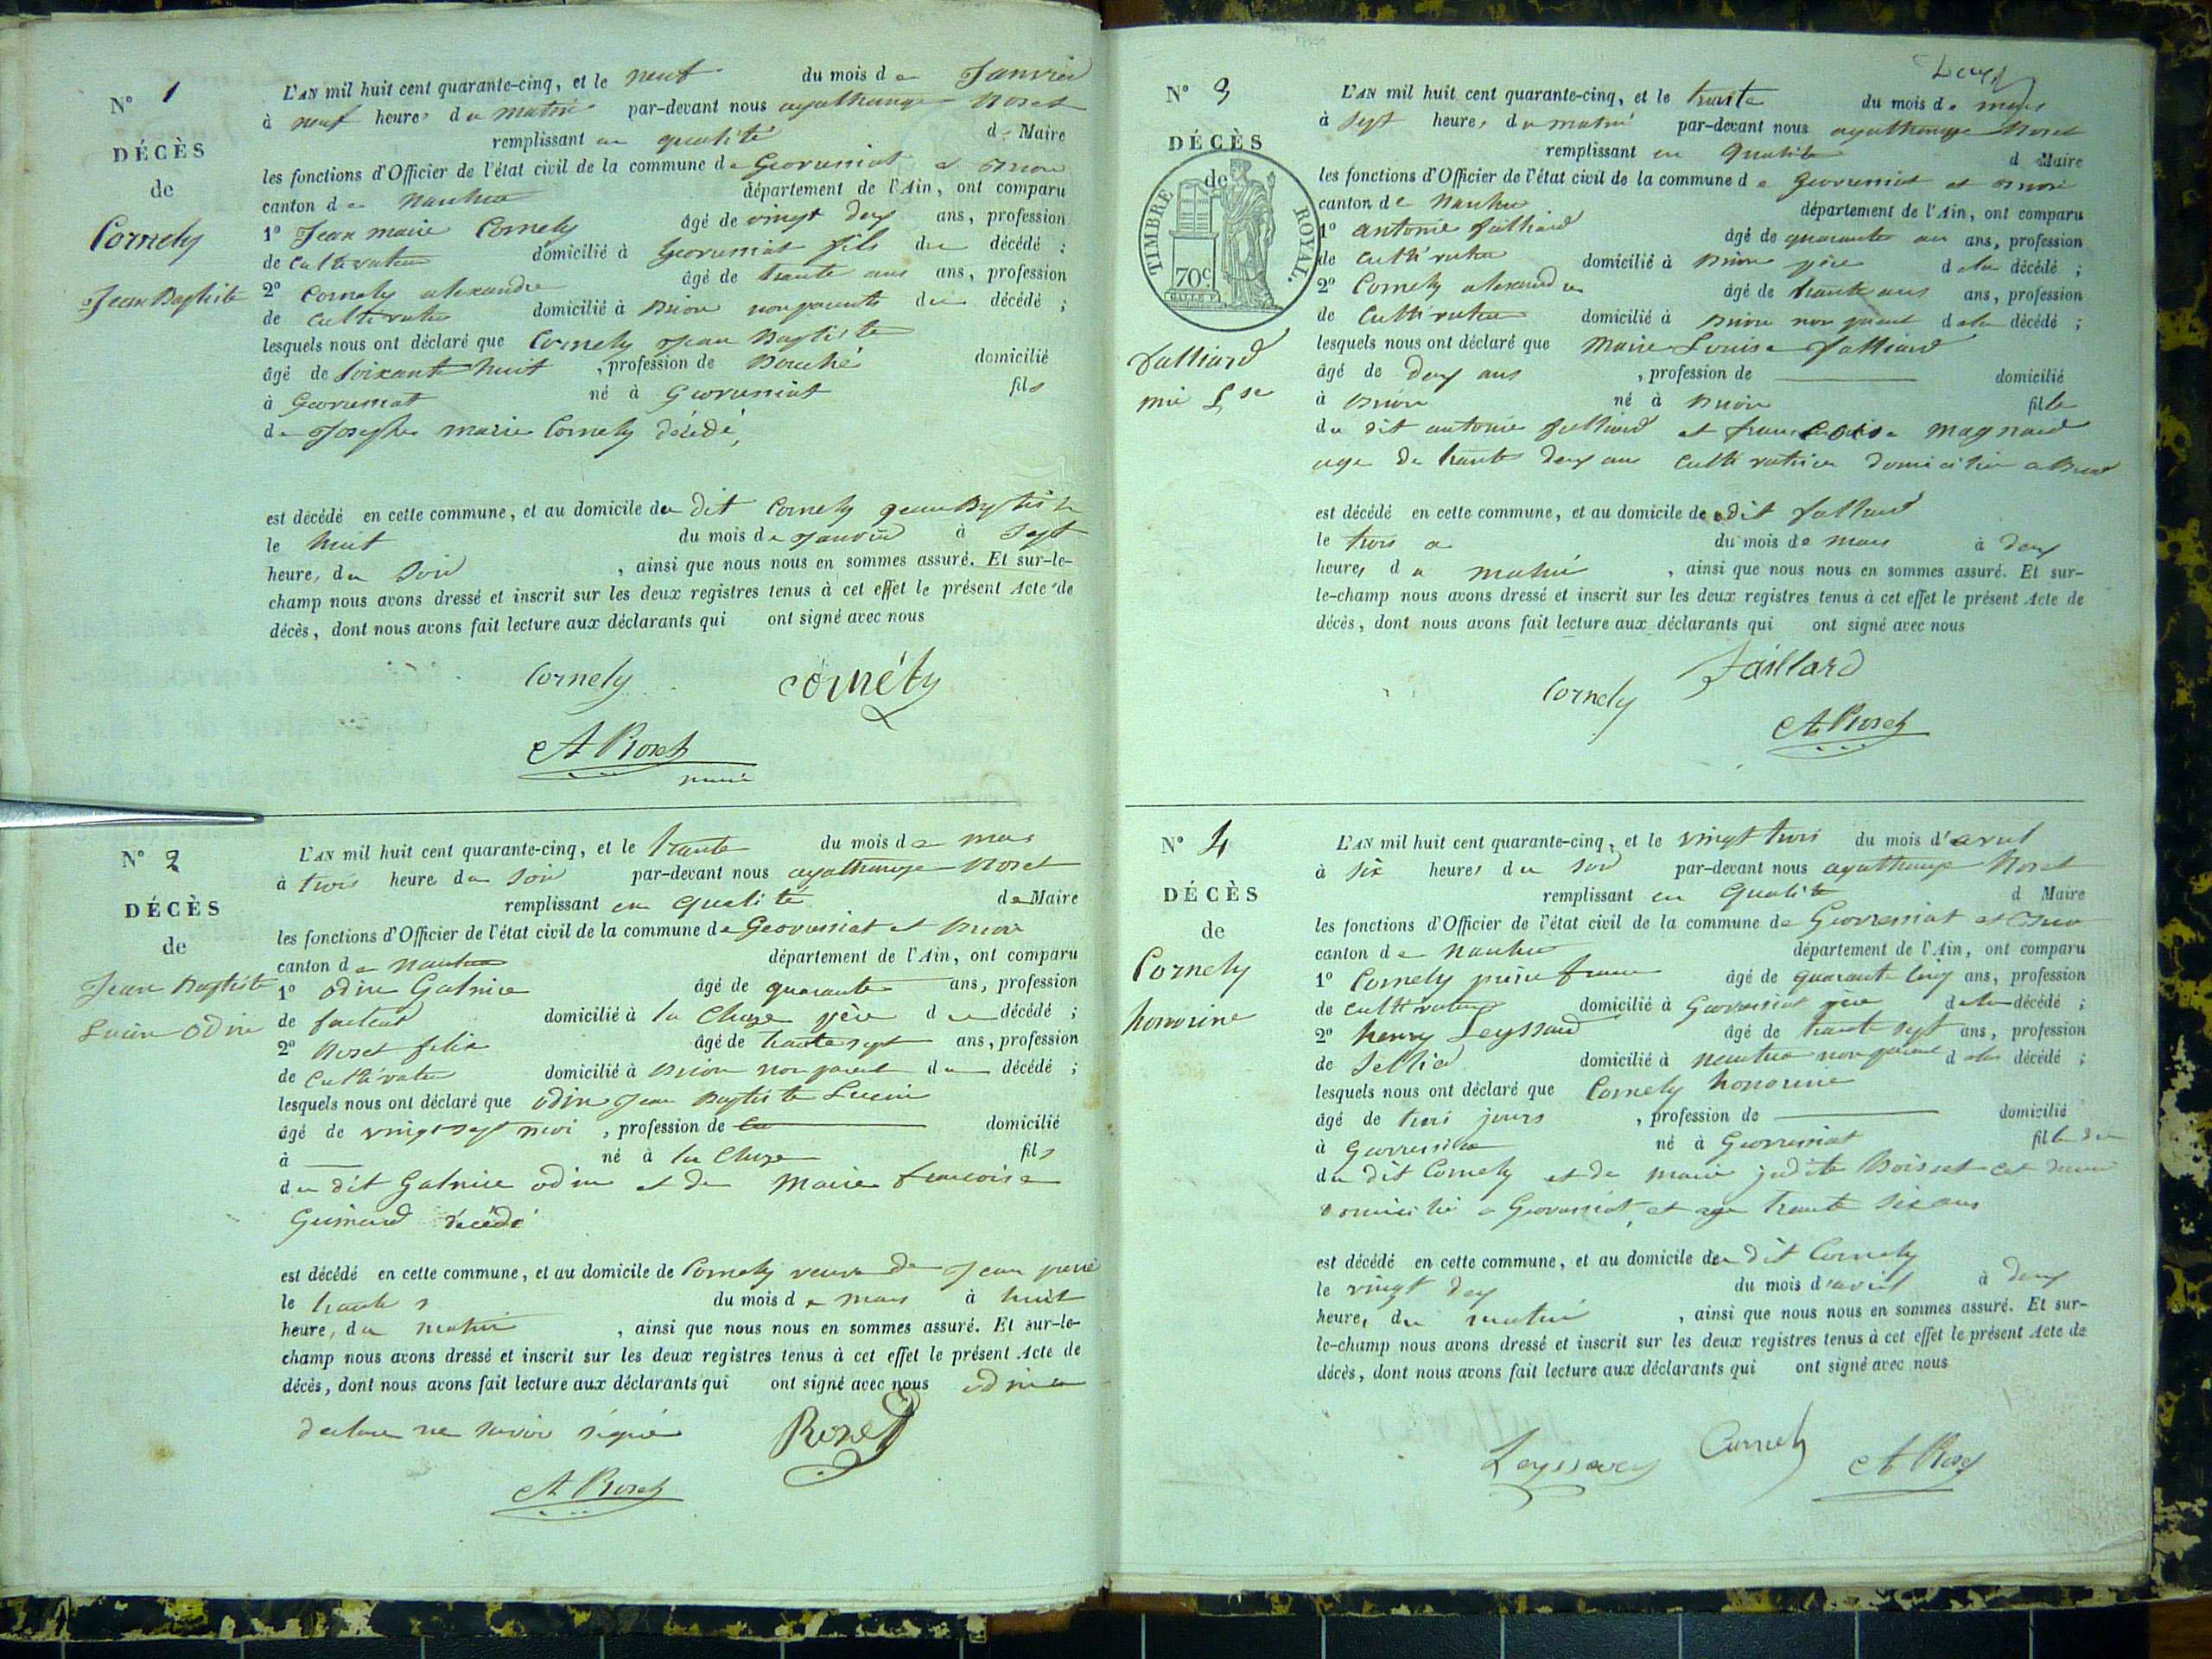 N° 1
DÉCÈS
de
Cornely
Jean Baptiste
L'AN mil huit cent quarante-cinq, et le neuf du mois de Janvier
à neuf heures du matin par-devant nous agathange Roset
remplissant en qualité de Maire
les fonctions d'Officier de l'état civil de la commune de Geovreissiat et Brion
canton de Nantua département de l'Ain, ont comparu
1° Jean marie Cornely âgé de vingt deux ans, profession
de cultivateur domicilié à Geovreissiat fils du décédé ;
2° Cornely alexandre âgé de trante ans ans, profession
de cultivateur domicilié à Brion non parents du décédé ;
lesquels nous ont déclaré que Cornely Jean Baptiste
âgé de soixante huit , profession de domicilié
à Geovreissiat né à Geovreissiat fils
de Joseph marie Cornely décédé,
est décédé en cette commune, et au domicile du dit Cornely Jean Baptiste
le huit du mois de Janvier à sept
heures du soir , ainsi que nous nous en sommes assuré. Et sur-le-
champ nous avons dressé et inscrit sur les deux registres tenus à cet effet le présent Acte de
décès, dont nous avons fait lecture aux déclarants qui ont signé avec nous
Cornely cornély
A Roset
maire
N° 2
DÉCÈS
de
Jean Baptiste
Lucien Odin
L'AN mil huit cent quarante-cinq, et le trante du mois de mars
à trois heure du soir par-devant nous agathange Roset
remplissant en qualité de Maire
les fonctions d'Officier de l'état civil de la commune de Geovreissiat et Brion
canton de Nantua département de l'Ain, ont comparu
1° odin âgé de quarante ans, profession
de facteur domicilié à la Cluze père du décédé ;
2° Roset felix âgé de trante sept ans, profession
de cultivateur domicilié à Brion non parent du décédé ;
lesquels nous ont déclaré que odin Jean Baptiste Lucien
âgé de vingt sept moi , profession de domicilié
à né à la Cluze fils
du dit odin et de Marie francoise
décédé
est décédé en cette commune, et au domicile de Cornely veuve de Jean
le trante du mois de mars à huit
heure, du matin , ainsi que nous nous en sommes assuré. Et sur-le-
champ nous avons dressé et inscrit sur les deux registres tenus à cet effet le présent Acte de
décès, dont nous avons fait lecture aux déclarants qui ont signé avec nous odin
declare ne savoir signé Roset
A Roset
N° 3
DÉCÈS
de
TIMBRE ROYAL.
70c
Falliard
L'AN mil huit cent quarante-cinq, et le trante du mois de mars
à sept heures du matin par-devant nous agathange Roset
remplissant en qualité d Maire
les fonctions d'Officier de l'état civil de la commune de Geovreissiat et Brion
canton de Nantua département de l'Ain, ont comparu
1° antoine falliard âgé de quarante ans, profession
de cultivateur domicilié à Brion père de la décédé ;
2° Cornely alexandre âgé de trante ans ans, profession
de cultivateur domicilié à Brion non parent de la décédé ;
lesquels nous ont déclaré que Marie Louise falliard
âgé de deux ans , profession de domicilié
à Brion né à Brion fille
du dit antoine falliard et francoise Magnard
age de trante deux ans cultivatrice domicilié a Brion
est décédé en cette commune, et au domicile de dit falliard
le du mois de mars à deux
heures du matin , ainsi que nous nous en sommes assuré. Et sur-
le-champ nous avons dressé et inscrit sur les deux registres tenus à cet effet le présent Acte de
décès, dont nous avons fait lecture aux déclarants qui ont signé avec nous
Faillard
Cornely
A Roset
N° 4
DÉCÈS
de
Cornely
honorine
L'AN mil huit cent quarante-cinq, et le vingt trois du mois d'avril
à six heures du soir par-devant nous agathange Roset
remplissant en qualité d Maire
les fonctions d'Officier de l'état civil de la commune de Geovreissiat et Brion
canton de Nantua département de l'Ain, ont comparu
1° Cornely âgé de quarante cinq ans, profession
de cultivateur domicilié à Geovreissiat père de la décédé ;
2° henry Leyssard âgé de trante sept ans, profession
de Sellier domicilié à nantua non parent de la décédé ;
lesquels nous ont déclaré que Cornely honorine
âgé de trois jours , profession de domicilié
à Geovreissiat né à Geovreissiat fille
du dit Cornely et de marie judite
domicilié a Geovreissiat et age trante six ans
est décédé en cette commune, et au domicile du dit Cornely
le vingt deux du mois d'avril à deux
heures du matin , ainsi que nous nous en sommes assuré. Et sur-
le-champ nous avons dressé et inscrit sur les deux registres tenus à cet effet le présent Acte de
décès, dont nous avons fait lecture aux déclarants qui ont signé avec nous
Leyssard Cornely A Roset